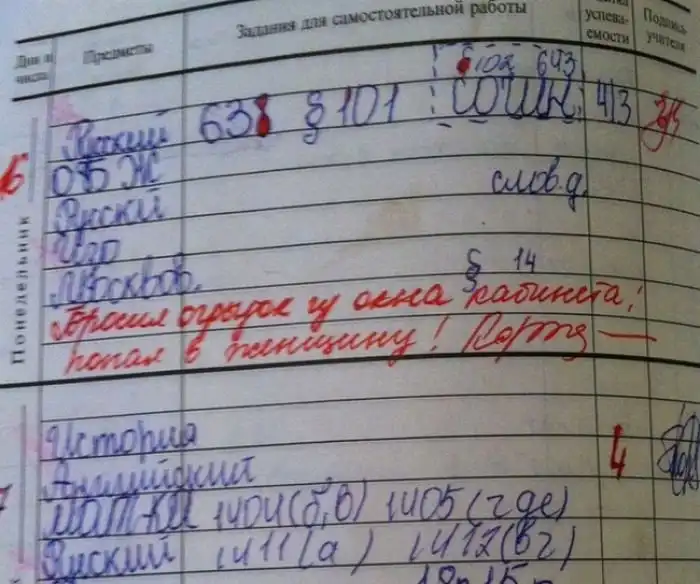 Дни и числа Предметы Задания для самостоятельной работы успева- емости Подпись учителя
§102 643
Русский 638 § 101 сочин. 4/3
ОБЖ
Рускй словд.
Изо
Москвов. § 14
Понедельник
Бросил огрызок из окна кабинета,
попал в женщину!
История
Английский 4
Мат-ка 1404(б,в) 1405(где)
Руский 1411(а) 1412(вг)